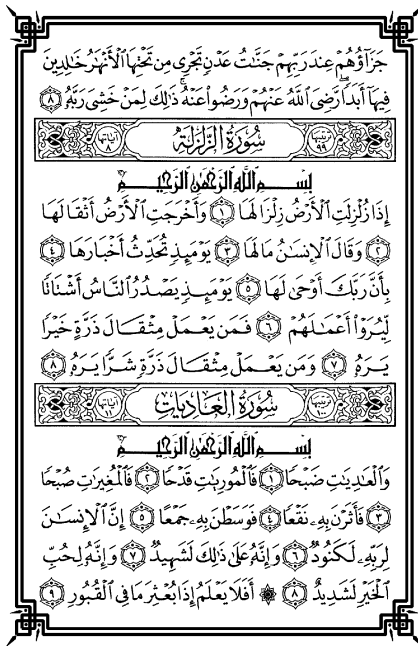 جَزَآؤُهُمْ عِندَ رَبِّهِمْ جَنَّٰتُ عَدْنٍ تَجْرِى مِن تَحْتِهَا ٱلْأَنْهَٰرُ خَٰلِدِينَ
فِيهَآ أَبَدًا ۖ رَّضِىَ ٱللَّهُ عَنْهُمْ وَرَضُوا۟ عَنْهُ ۚ ذَٰلِكَ لِمَنْ خَشِىَ رَبَّهُۥ ٨
ترتيبها ٩٩ سُورَةُ الزَّلْزَلَةِ آياتها ٨
بِسْمِ ٱللَّهِ ٱلرَّحْمَٰنِ ٱلرَّحِيمِ
إِذَا زُلْزِلَتِ ٱلْأَرْضُ زِلْزَالَهَا ١ وَأَخْرَجَتِ ٱلْأَرْضُ أَثْقَالَهَا
٢ وَقَالَ ٱلْإِنسَٰنُ مَا لَهَا ٣ يَوْمَئِذٍ تُحَدِّثُ أَخْبَارَهَا ٤
بِأَنَّ رَبَّكَ أَوْحَىٰ لَهَا ٥ يَوْمَئِذٍ يَصْدُرُ ٱلنَّاسُ أَشْتَاتًا
لِّيُرَوْا۟ أَعْمَٰلَهُمْ ٦ فَمَن يَعْمَلْ مِثْقَالَ ذَرَّةٍ خَيْرًا
يَرَهُۥ ٧ وَمَن يَعْمَلْ مِثْقَالَ ذَرَّةٍ شَرًّا يَرَهُۥ ٨
ترتيبها ١٠٠ سُورَةُ الْعَادِيَاتِ آياتها ١١
بِسْمِ ٱللَّهِ ٱلرَّحْمَٰنِ ٱلرَّحِيمِ
وَٱلْعَٰدِيَٰتِ ضَبْحًا ١ فَٱلْمُورِيَٰتِ قَدْحًا ٢ فَٱلْمُغِيرَٰتِ صُبْحًا
٣ فَأَثَرْنَ بِهِۦ نَقْعًا ٤ فَوَسَطْنَ بِهِۦ جَمْعًا ٥ إِنَّ ٱلْإِنسَٰنَ
لِرَبِّهِۦ لَكَنُودٌ ٦ وَإِنَّهُۥ عَلَىٰ ذَٰلِكَ لَشَهِيدٌ ٧ وَإِنَّهُۥ لِحُبِّ
ٱلْخَيْرِ لَشَدِيدٌ ٨ ۞ أَفَلَا يَعْلَمُ إِذَا بُعْثِرَ مَا فِى ٱلْقُبُورِ ٩